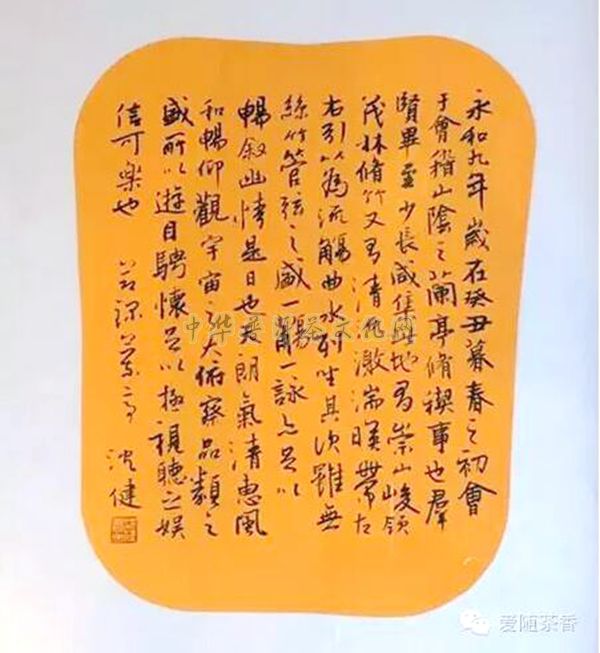 永和九年歲在癸丑暮春之初會
于會稽山陰之蘭亭脩禊事也羣
賢畢至少長咸集此地有崇山峻領
茂林脩竹又有清流激湍暎帶左
右引以為流觴曲水列坐其次雖無
絲竹管弦之盛一觴一詠亦足以
暢敘幽情是日也天朗氣清惠風
和暢仰觀宇宙之大俯察品類之
盛所以遊目騁懷足以極視聽之娛
信可樂也 節錄蘭亭 沈健
中华普洱茶文化网
爱随茶香